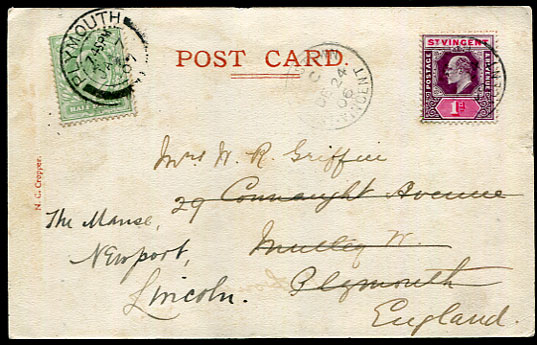 PLYMOUTH
7.45 PM
POST CARD.
DE 24
06
VINCENT
ST VINCENT
POSTAGE
& REVENUE
1d
N. C. Cropper.
Mrs W. R. Griffin
29 Connaught Avenue
Mutley
Plymouth
England.
The Manse,
Newport,
Lincoln.